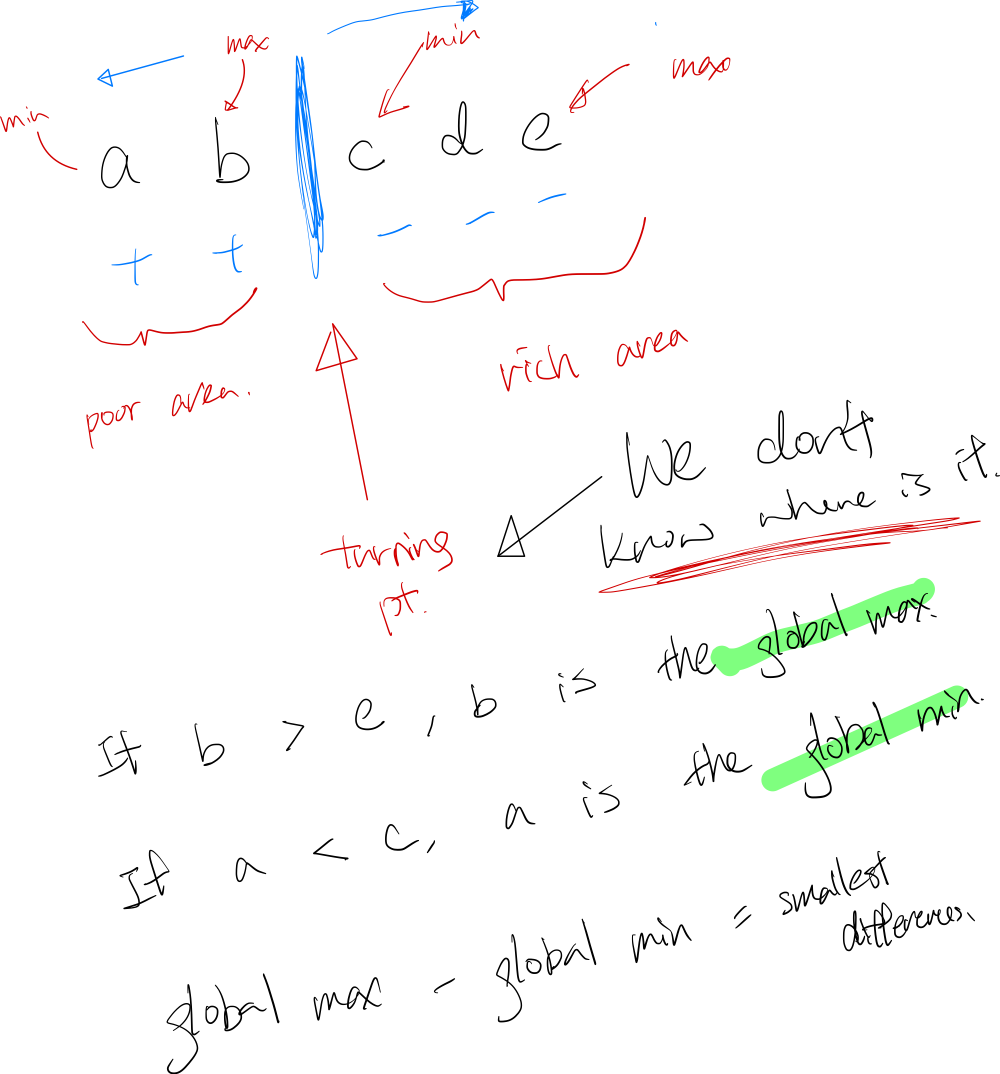 max
min
max
min
a b c d e
+ + - - -
poor area.
rich area
We don't
know where is it.
turning
pt.
If b > e, b is the global max.
If a < c, a is the global min.
global max - global min = smallest
differences.